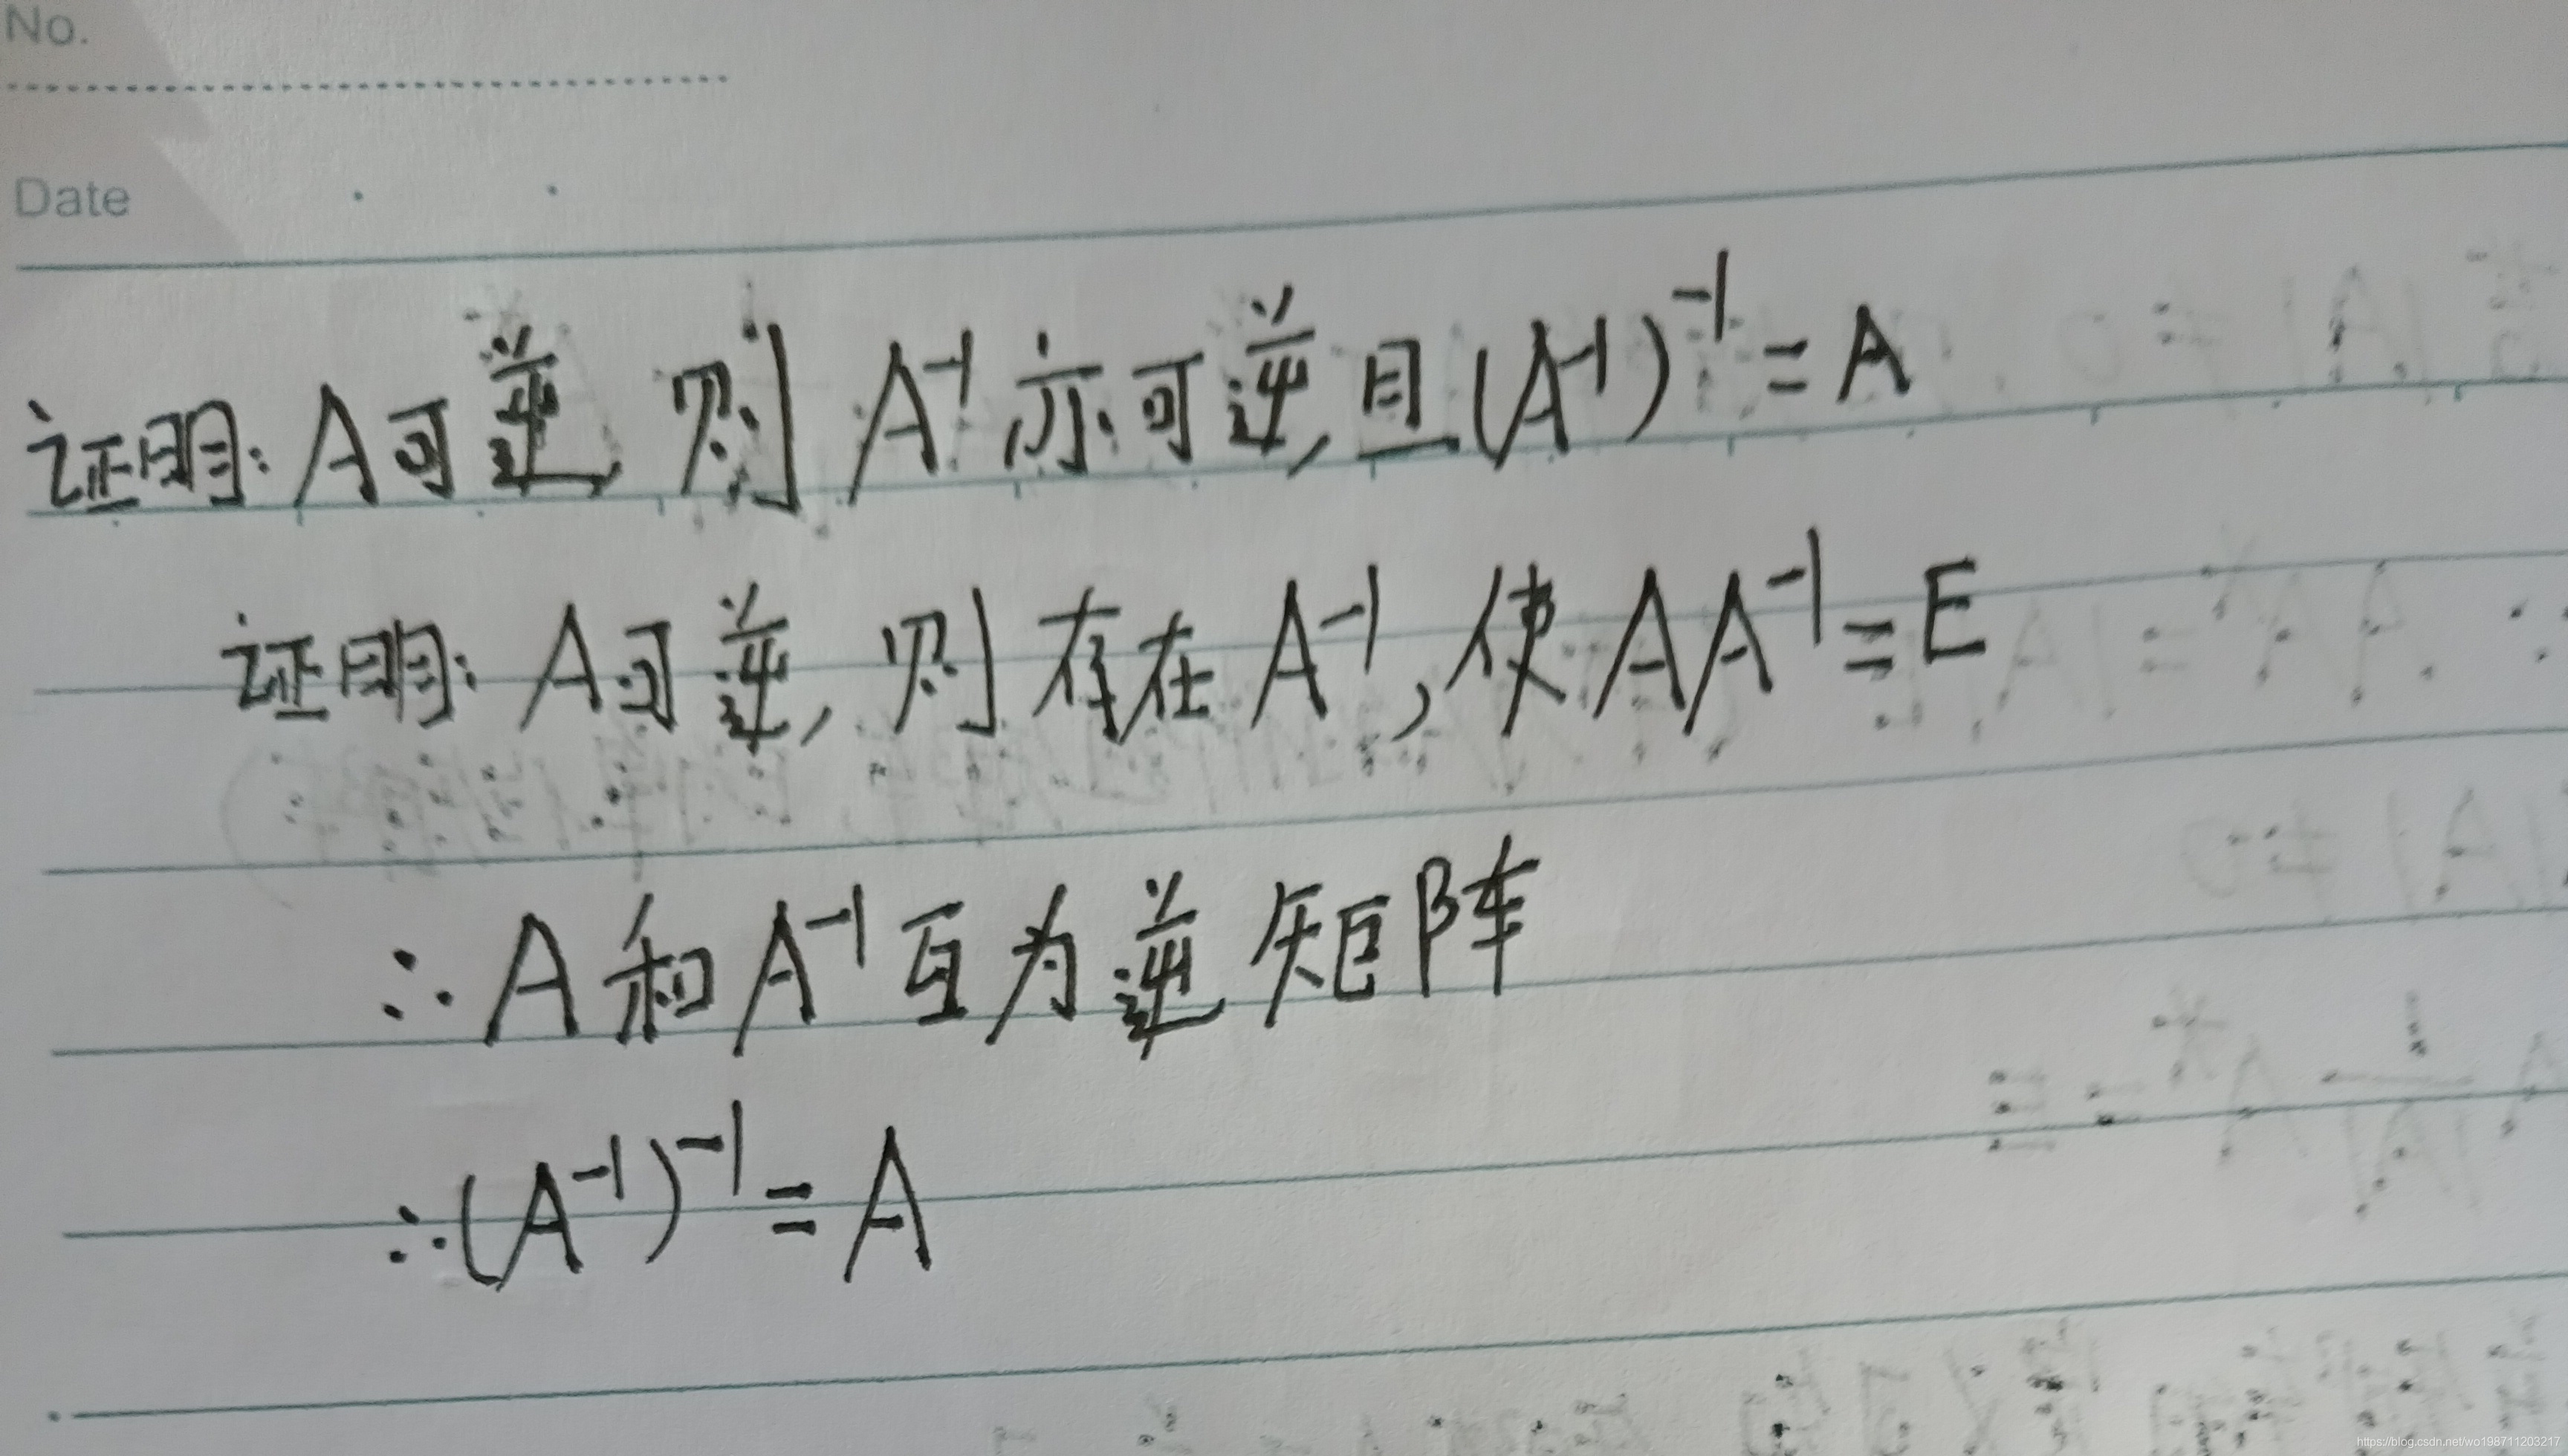 No.
Date
证明: A可逆, 则 A⁻¹ 亦可逆, 且 (A⁻¹)⁻¹ = A
证明: A可逆, 则存在 A⁻¹, 使 AA⁻¹ = E
∴ A 和 A⁻¹ 互为逆矩阵
∴ (A⁻¹)⁻¹ = A
https://blog.csdn.net/wo198711203217